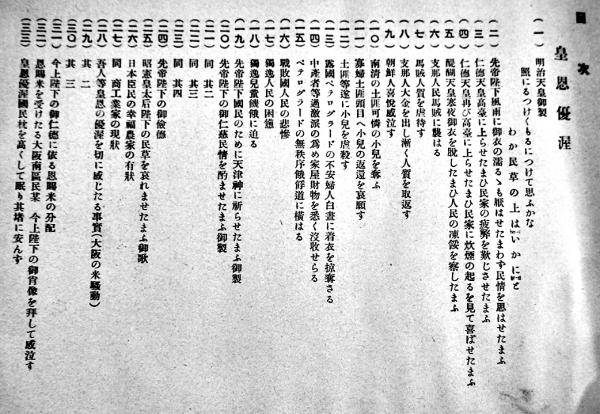 目次
皇恩優渥
(一) 明治天皇御製
照にるつけくもるにつけて思ふかな
わか民草の上はいかにと
(二) 先帝陛下風雨に御衣の濡るゝも厭はせたまわす民情を思はせたまふ
(三) 仁徳天皇高臺に上らせたまひ民家の疲弊を歎じさせたまふ
(四) 仁徳天皇再び高臺に上らせたまひ民家に炊煙の起るを見て喜ばせたまふ
(五) 醍醐天皇寒夜御衣を脱したまひ人民の凍餒を察したまふ
(六) 支那人民馬賊に襲はる
(七) 馬賊人質を虐待す
(八) 支那人大金を出し漸く人質を取返す
(九) 朝鮮人喜悅感泣す
(一〇) 南清の土匪可憐の小兒を奪ふ
(一一) 寡婦土匪頭目へ小兒の返還を哀願す
(一二) 土匪等遂に小兒を虐殺す
(一三) 露國ペラログラードの不安婦人白晝に着衣を掠奪さる
(一四) 中產者等過激派の爲め家屋財物を悉く沒收せらる
(一五) ペラログラードの無秩序餓莩道に橫はる
(一六) 戰敗國人民の悲慘
(一七) 獨逸人民の困憊
(一八) 獨逸兒童餓餓に迫る
(一九) 先帝陛下國民のために天津神に祈らせたまふ御製
(二〇) 先帝陛下の御仁慈民情を酌ませたまふ御製
(二一) 同 其二
(二二) 同 其三
(二三) 同 其四
(二四) 先帝陛下の御儉德
(二五) 昭憲皇太后陛下の民草を哀れませたまふ御歌
(二六) 日本臣民の幸福農家の有狀
(二七) 同 商工業家の現狀
(二八) 吾人等皇恩の優渥を切に感じたる事實(大阪の米騷動)
(二九) 其 二
(三〇) 其 三
(三一) 今上陛下の御仁德に依る恩賜米の分配
(三二) 恩賜米を受けたる大阪南區民某 今上陛下の御肖像を拜して感泣す
(三三) 皇恩優渥國民枕を高くして眠り其堵に安んす